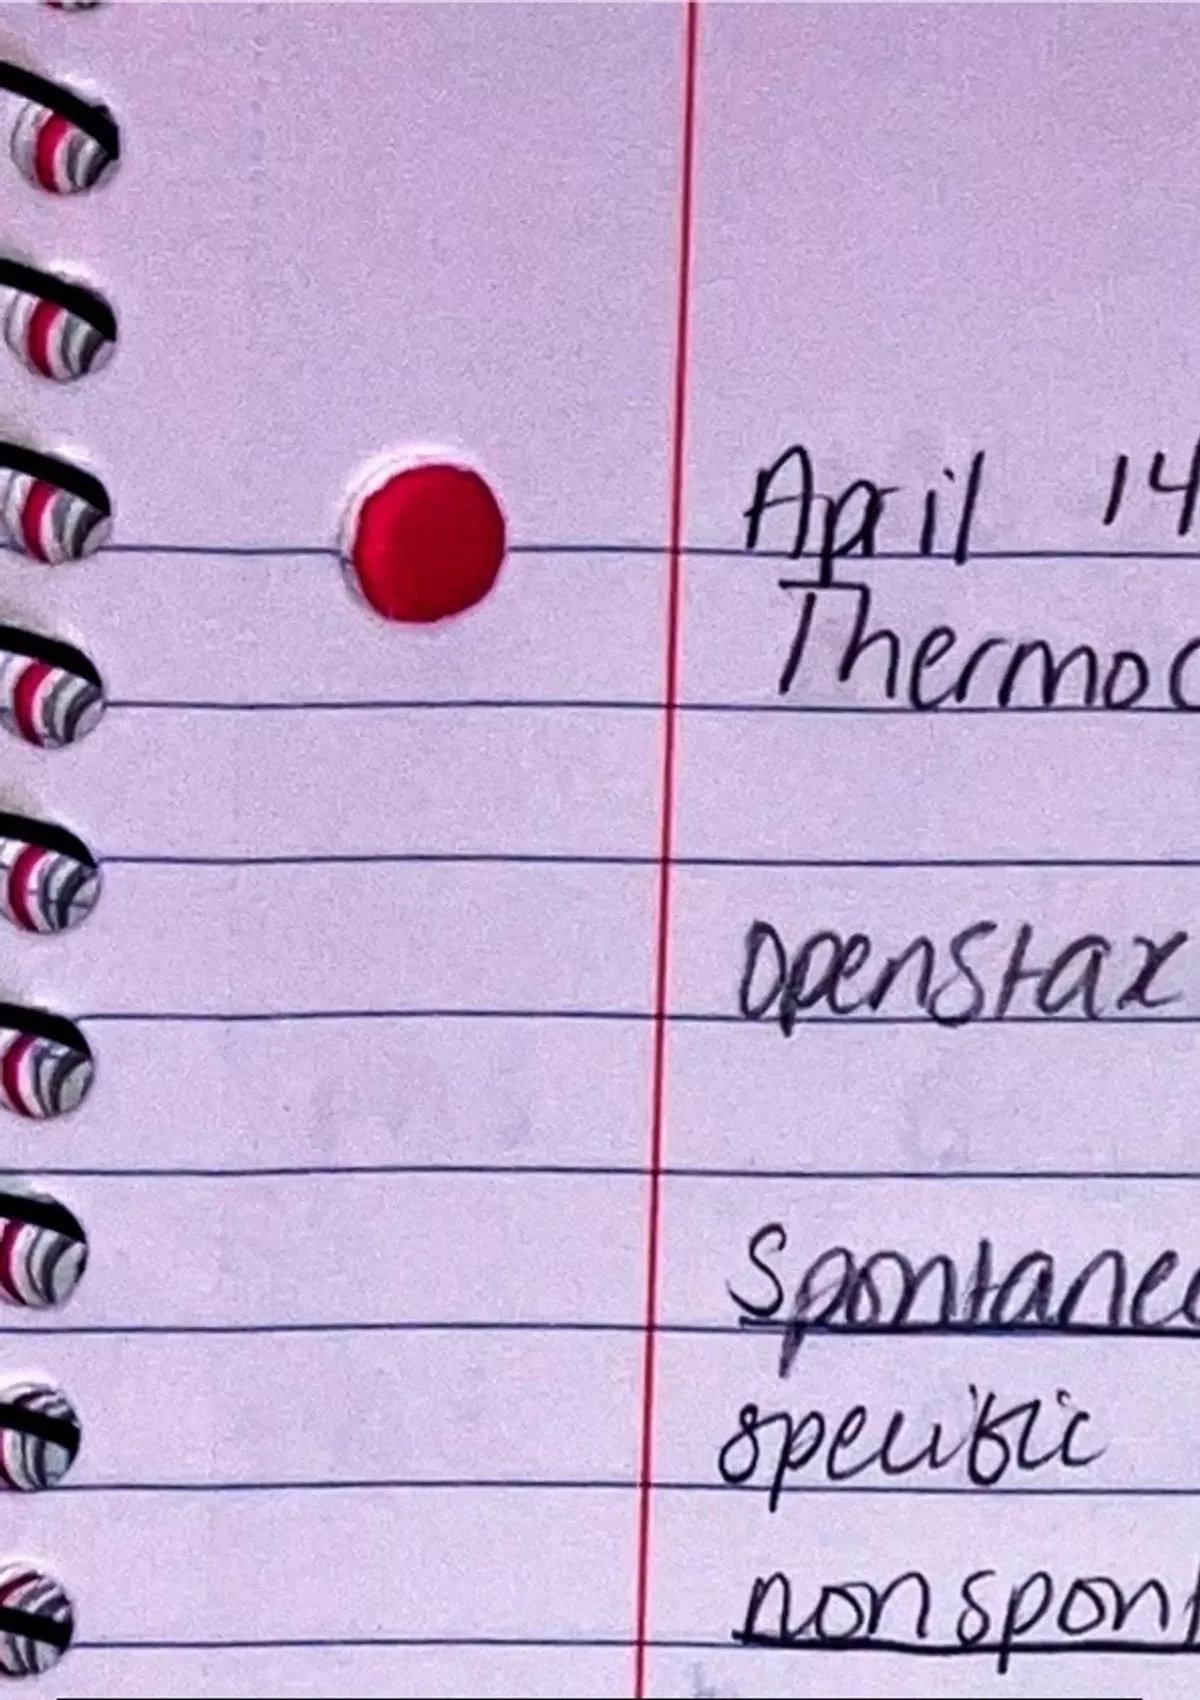 April 14
Thermo
Openstax
Spontane
specific
nonspon